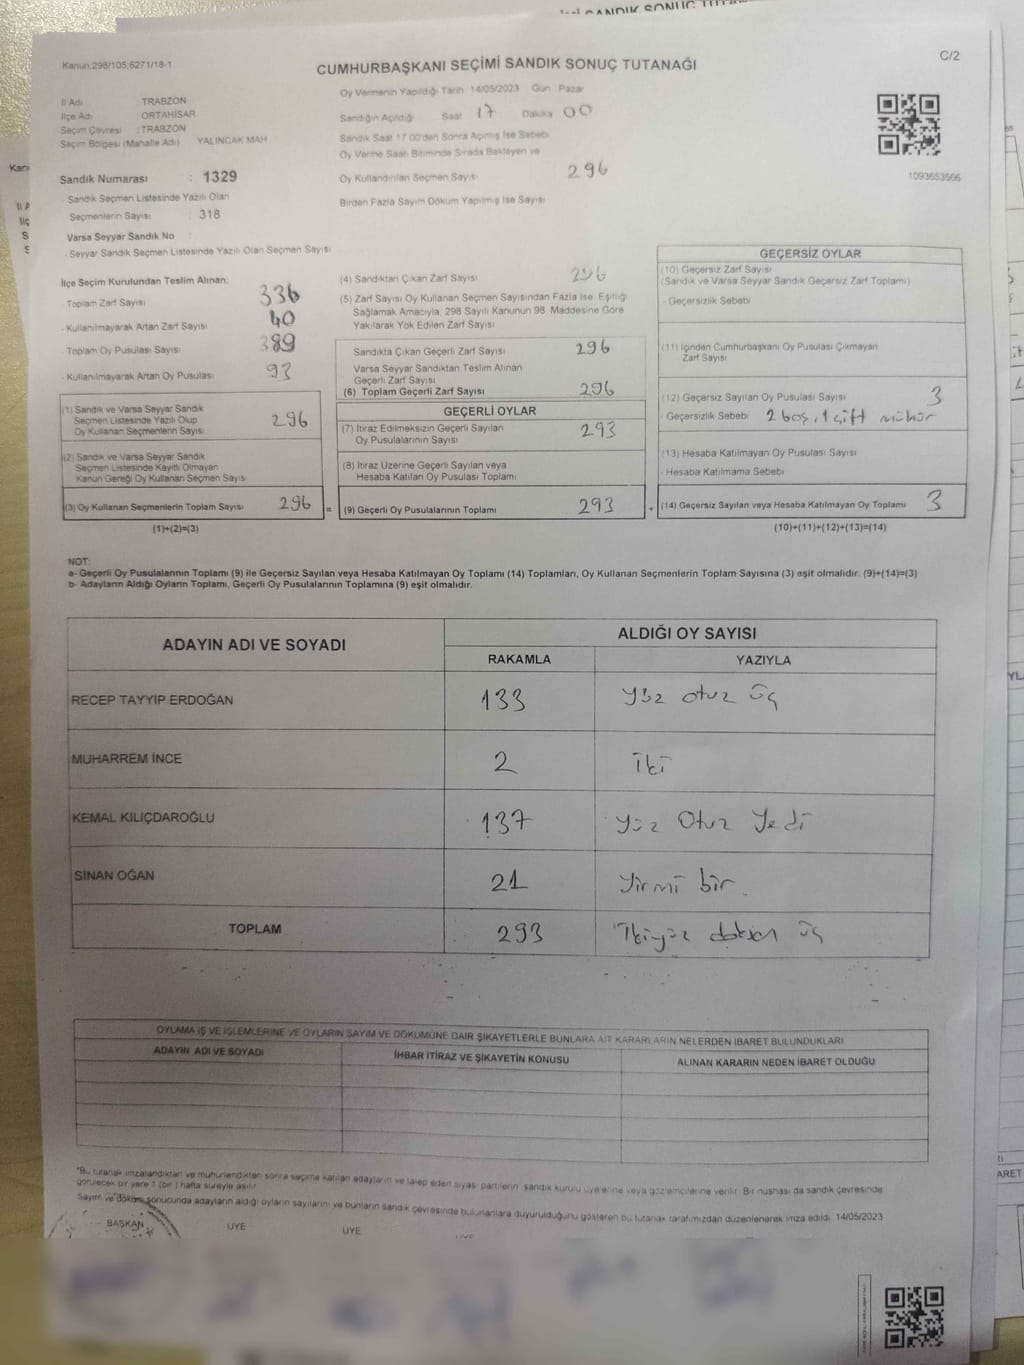 Kanun:298/105,6271/18-1
C/2
CUMHURBAŞKANI SEÇİMİ SANDIK SONUÇ TUTANAĞI
İl Adı TRABZON
İlçe Adı ORTAHİSAR
Seçim Çevresi : TRABZON
Seçim Bölgesi (Mahalle Adı) YALINCAK MAH
Oy Vermenin Yapıldığı Tarih 14/05/2023 Gün Pazar
Sandığın Açıldığı Saat 17 Dakika 00
Sandık Saat 17.00'den Sonra Açılmış İse Sebebi
Oy Verme Saati Bitiminde Sırada Bekleyen ve
Oy Kullandırılan Seçmen Sayısı 296
Birden Fazla Sayım Döküm Yapılmış İse Sayısı
1093653566
Sandık Numarası : 1329
- Sandık Seçmen Listesinde Yazılı Olan
Seçmenlerin Sayısı : 318
Varsa Seyyar Sandık No :
- Seyyar Sandık Seçmen Listesinde Yazılı Olan Seçmen Sayısı
İlçe Seçim Kurulundan Teslim Alınan;
- Toplam Zarf Sayısı 336
- Kullanılmayarak Artan Zarf Sayısı 40
- Toplam Oy Pusulası Sayısı 389
- Kullanılmayarak Artan Oy Pusulası 93
(1) Sandık ve Varsa Seyyar Sandık
Seçmen Listesinde Yazılı Olup
Oy Kullanan Seçmenlerin Sayısı 296
(2) Sandık ve Varsa Seyyar Sandık
Seçmen Listesinde Kayıtlı Olmayan
Kanun Gereği Oy Kullanan Seçmen Sayısı
(3) Oy Kullanan Seçmenlerin Toplam Sayısı 296
(1)+(2)=(3)
(4) Sandıktan Çıkan Zarf Sayısı 296
(5) Zarf Sayısı Oy Kullanan Seçmen Sayısından Fazla İse, Eşitliği
Sağlamak Amacıyla, 298 Sayılı Kanunun 98. Maddesine Göre
Yakılarak Yok Edilen Zarf Sayısı
Sandıkta Çıkan Geçerli Zarf Sayısı 296
Varsa Seyyar Sandıktan Teslim Alınan
Geçerli Zarf Sayısı
(6) Toplam Geçerli Zarf Sayısı 296
GEÇERLİ OYLAR
(7) İtiraz Edilmeksizin Geçerli Sayılan
Oy Pusulalarının Sayısı 293
(8) İtiraz Üzerine Geçerli Sayılan veya
Hesaba Katılan Oy Pusulası Toplamı
= (9) Geçerli Oy Pusulalarının Toplamı 293
GEÇERSİZ OYLAR
(10) Geçersiz Zarf Sayısı
(Sandık ve Varsa Seyyar Sandık Geçersiz Zarf Toplamı)
- Geçersizlik Sebebi
(11) İçinden Cumhurbaşkanı Oy Pusulası Çıkmayan
Zarf Sayısı
(12) Geçersiz Sayılan Oy Pusulası Sayısı 3
- Geçersizlik Sebebi 2 boş, 1 çift mühür
(13) Hesaba Katılmayan Oy Pusulası Sayısı
- Hesaba Katılmama Sebebi
+ (14) Geçersiz Sayılan veya Hesaba Katılmayan Oy Toplamı 3
(10)+(11)+(12)+(13)=(14)
NOT:
a- Geçerli Oy Pusulalarının Toplamı (9) ile Geçersiz Sayılan veya Hesaba Katılmayan Oy Toplamı (14) Toplamları, Oy Kullanan Seçmenlerin Toplam Sayısına (3) eşit olmalıdır. (9)+(14)=(3)
b- Adayların Aldığı Oyların Toplamı, Geçerli Oy Pusulalarının Toplamına (9) eşit olmalıdır.
ADAYIN ADI VE SOYADI ALDIĞI OY SAYISI
RAKAMLA YAZIYLA
RECEP TAYYİP ERDOĞAN 133 Yüz otuz üç
MUHARREM İNCE 2 İki
KEMAL KILIÇDAROĞLU 137 Yüz Otuz Yedi
SİNAN OĞAN 21 Yirmi bir
TOPLAM 293 İkiyüz doksan üç
OYLAMA İŞ VE İŞLEMLERİNE VE OYLARIN SAYIM VE DÖKÜMÜNE DAİR ŞİKAYETLERLE BUNLARA AİT KARARLARIN NELERDEN İBARET BULUNDUKLARI
ADAYIN ADI VE SOYADI İHBAR İTİRAZ VE ŞİKAYETİN KONUSU ALINAN KARARIN NEDEN İBARET OLDUĞU
*Bu tutanak imzalandıktan ve mühürlendikten sonra seçime katılan adayların ve talep eden siyasi partilerin sandık kurulu üyelerine veya gözlemcilerine verilir. Bir nüshası da sandık çevresinde
görülecek bir yere 1 (bir) hafta süreyle asılır.
Sayım ve döküm sonucunda adayların aldığı oyların sayılarını ve bunların sandık çevresinde bulunanlara duyurulduğunu gösteren bu tutanak tarafımızdan düzenlenerek imza edildi. 14/05/2023
BAŞKAN ÜYE ÜYE ÜYE